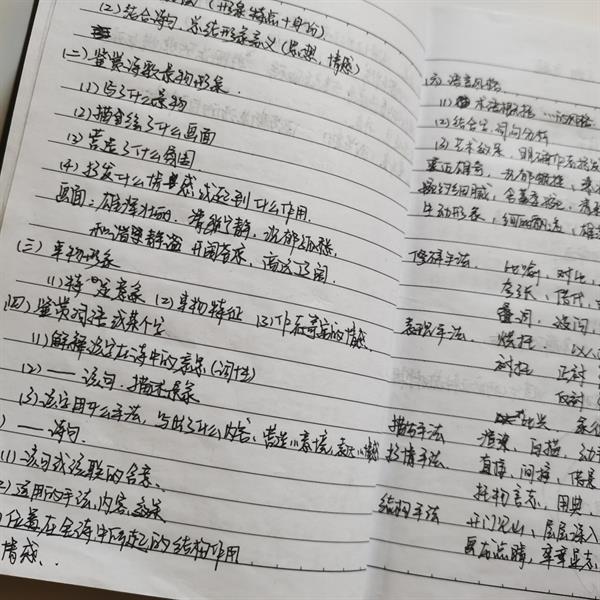 (2)结合诗句,总结形象意义(思想,情感)
(二)鉴赏诗歌景物形象.
(1)写了什么景物
(2)描绘了什么画面
(3)营造了什么氛围
(4)抒发什么情感或起到什么作用.
画面:雄浑壮丽. 清幽宁静, 沉郁孤愁.
和谐静谧 开阔苍凉, 高远辽阔.
(三)事物形象
(1)特定意象 (2)事物特征 (3)作者寄寓的情感.
(四)鉴赏词语或某个字
(1)解释该字在诗中的意思(词性)
(2)——该句.描述景象
(3)该字用什么手法, 写出了什么内容, 营造小意境, 表达小情
)——诗句.
(1)该句或该联的含意、
2)运用的手法,内容,效果
)位置在全诗中所起的结构作用
情感.
语言风格
(2)结合字,词句分析
(3)艺术效果,
生动形象,
修辞手法. 比喻, 对比,
夸张、借代,
叠词. 设问.
表现手法. 烘托
对比 正衬
反衬
比兴.
描写手法 渲染, 白描, 动
抒情手法. 直接, 间接, 借景
托物言志, 用典.
结构手法 开门见山, 层层深入
画龙点睛, 卒章显志